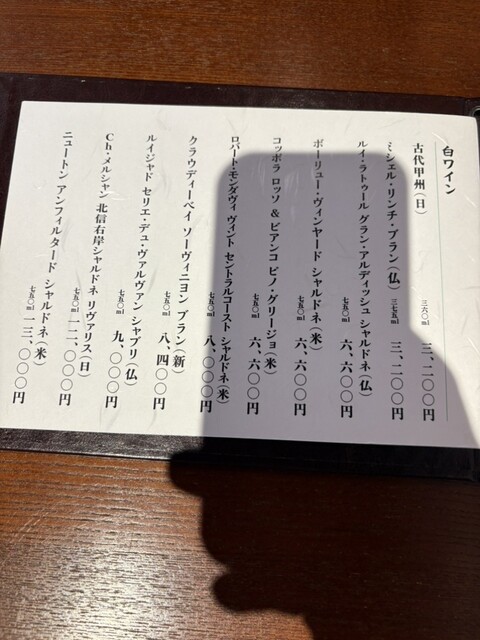 白ワイン
古代甲州(日) 三六〇ml 三、二〇〇円
ミシェル・リンチ・ブラン(仏) 三七五ml 三、二〇〇円
ルイ・ラトゥール グラン・アルディッシュ シャルドネ(仏) 七五〇ml 六、六〇〇円
ボーリュー・ヴィンヤード シャルドネ(米) 七五〇ml 六、六〇〇円
コッポラ ロッソ & ビアンコ ピノ・グリージョ(米) 七五〇ml 六、六〇〇円
ロバート・モンダヴィ ヴィント セントラルコースト シャルドネ(米) 七五〇ml 八、〇〇〇円
クラウディーベイ ソーヴィニヨン ブラン(新) 七五〇ml 八、四〇〇円
ルイジャド セリエ・デュ・ヴァルヴァン シャブリ(仏) 七五〇ml 九、〇〇〇円
Ch・メルシャン 北信右岸シャルドネ リヴァリス(日) 七五〇ml 一二、〇〇〇円
ニュートン アンフィルタード シャルドネ(米) 七五〇ml 一三、〇〇〇円